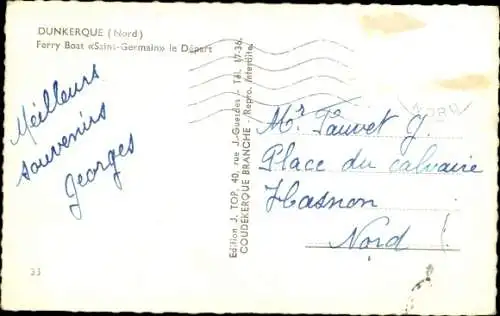 DUNKERQUE (Nord)
Ferry Boat «Saint-Germain» le Départ
Meilleurs
souvenirs
Georges
Edition J. TOP, 40, rue J.-Guesdes - Tél. 17-36.
COUDEKERQUE BRANCHE - Repro. interdite
Mr Pauvet G.
Place du calvaire
Hasnon
Nord
33